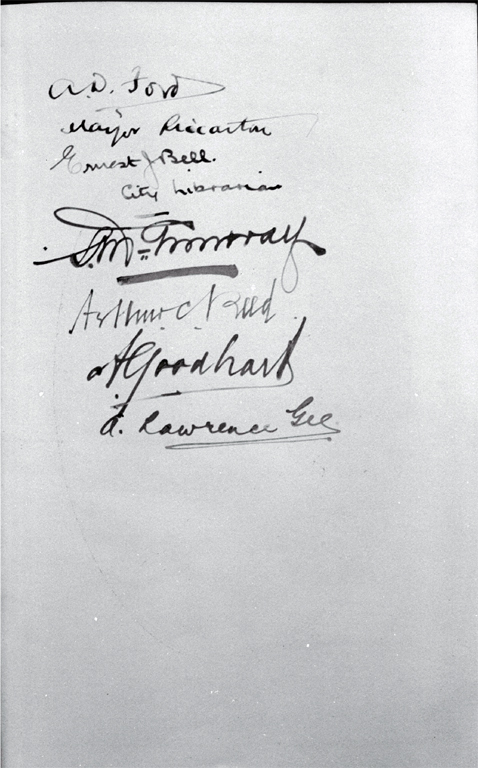 A.D. Ford
Mayor Riccarton
Ernest J Bell.
City Librarian
Arthur C Reed
A Goodhart
A. Lawrence Gee